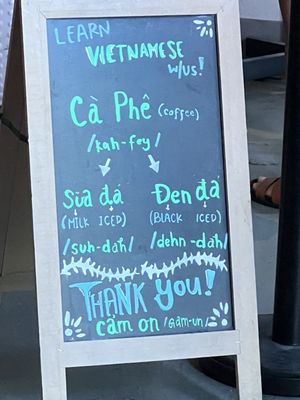 LEARN
VIETNAMESE
w/us!
Cà Phê (coffee)
/kah-fey/
Sữa đá Đen đá
(MILK ICED) (BLACK ICED)
/suh-dah/ /dehn-dah/
THANK YOU!
cảm ơn /Gahm-un/